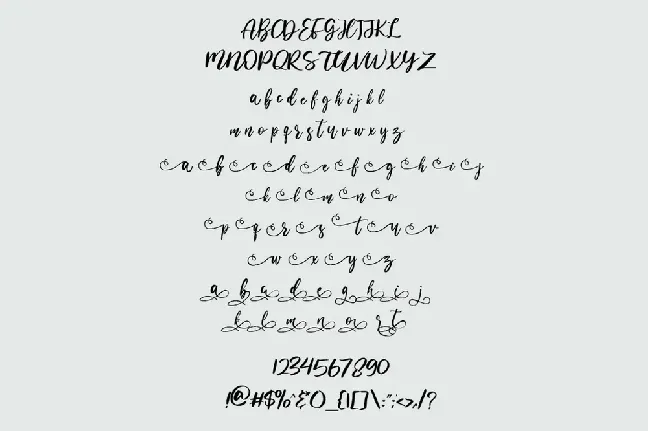 ABCDEFGHIJKL
MNOPQRSTUVWXYZ
abcdefghijkl
mnopqrstuvwxyz
a b c d e f g h i j
k l m n o
p q r s t u v
w x y z
a b c d e g h i j
k l m n o r t
1234567890
!@#$%^&()_{|[]\:";<>,/?